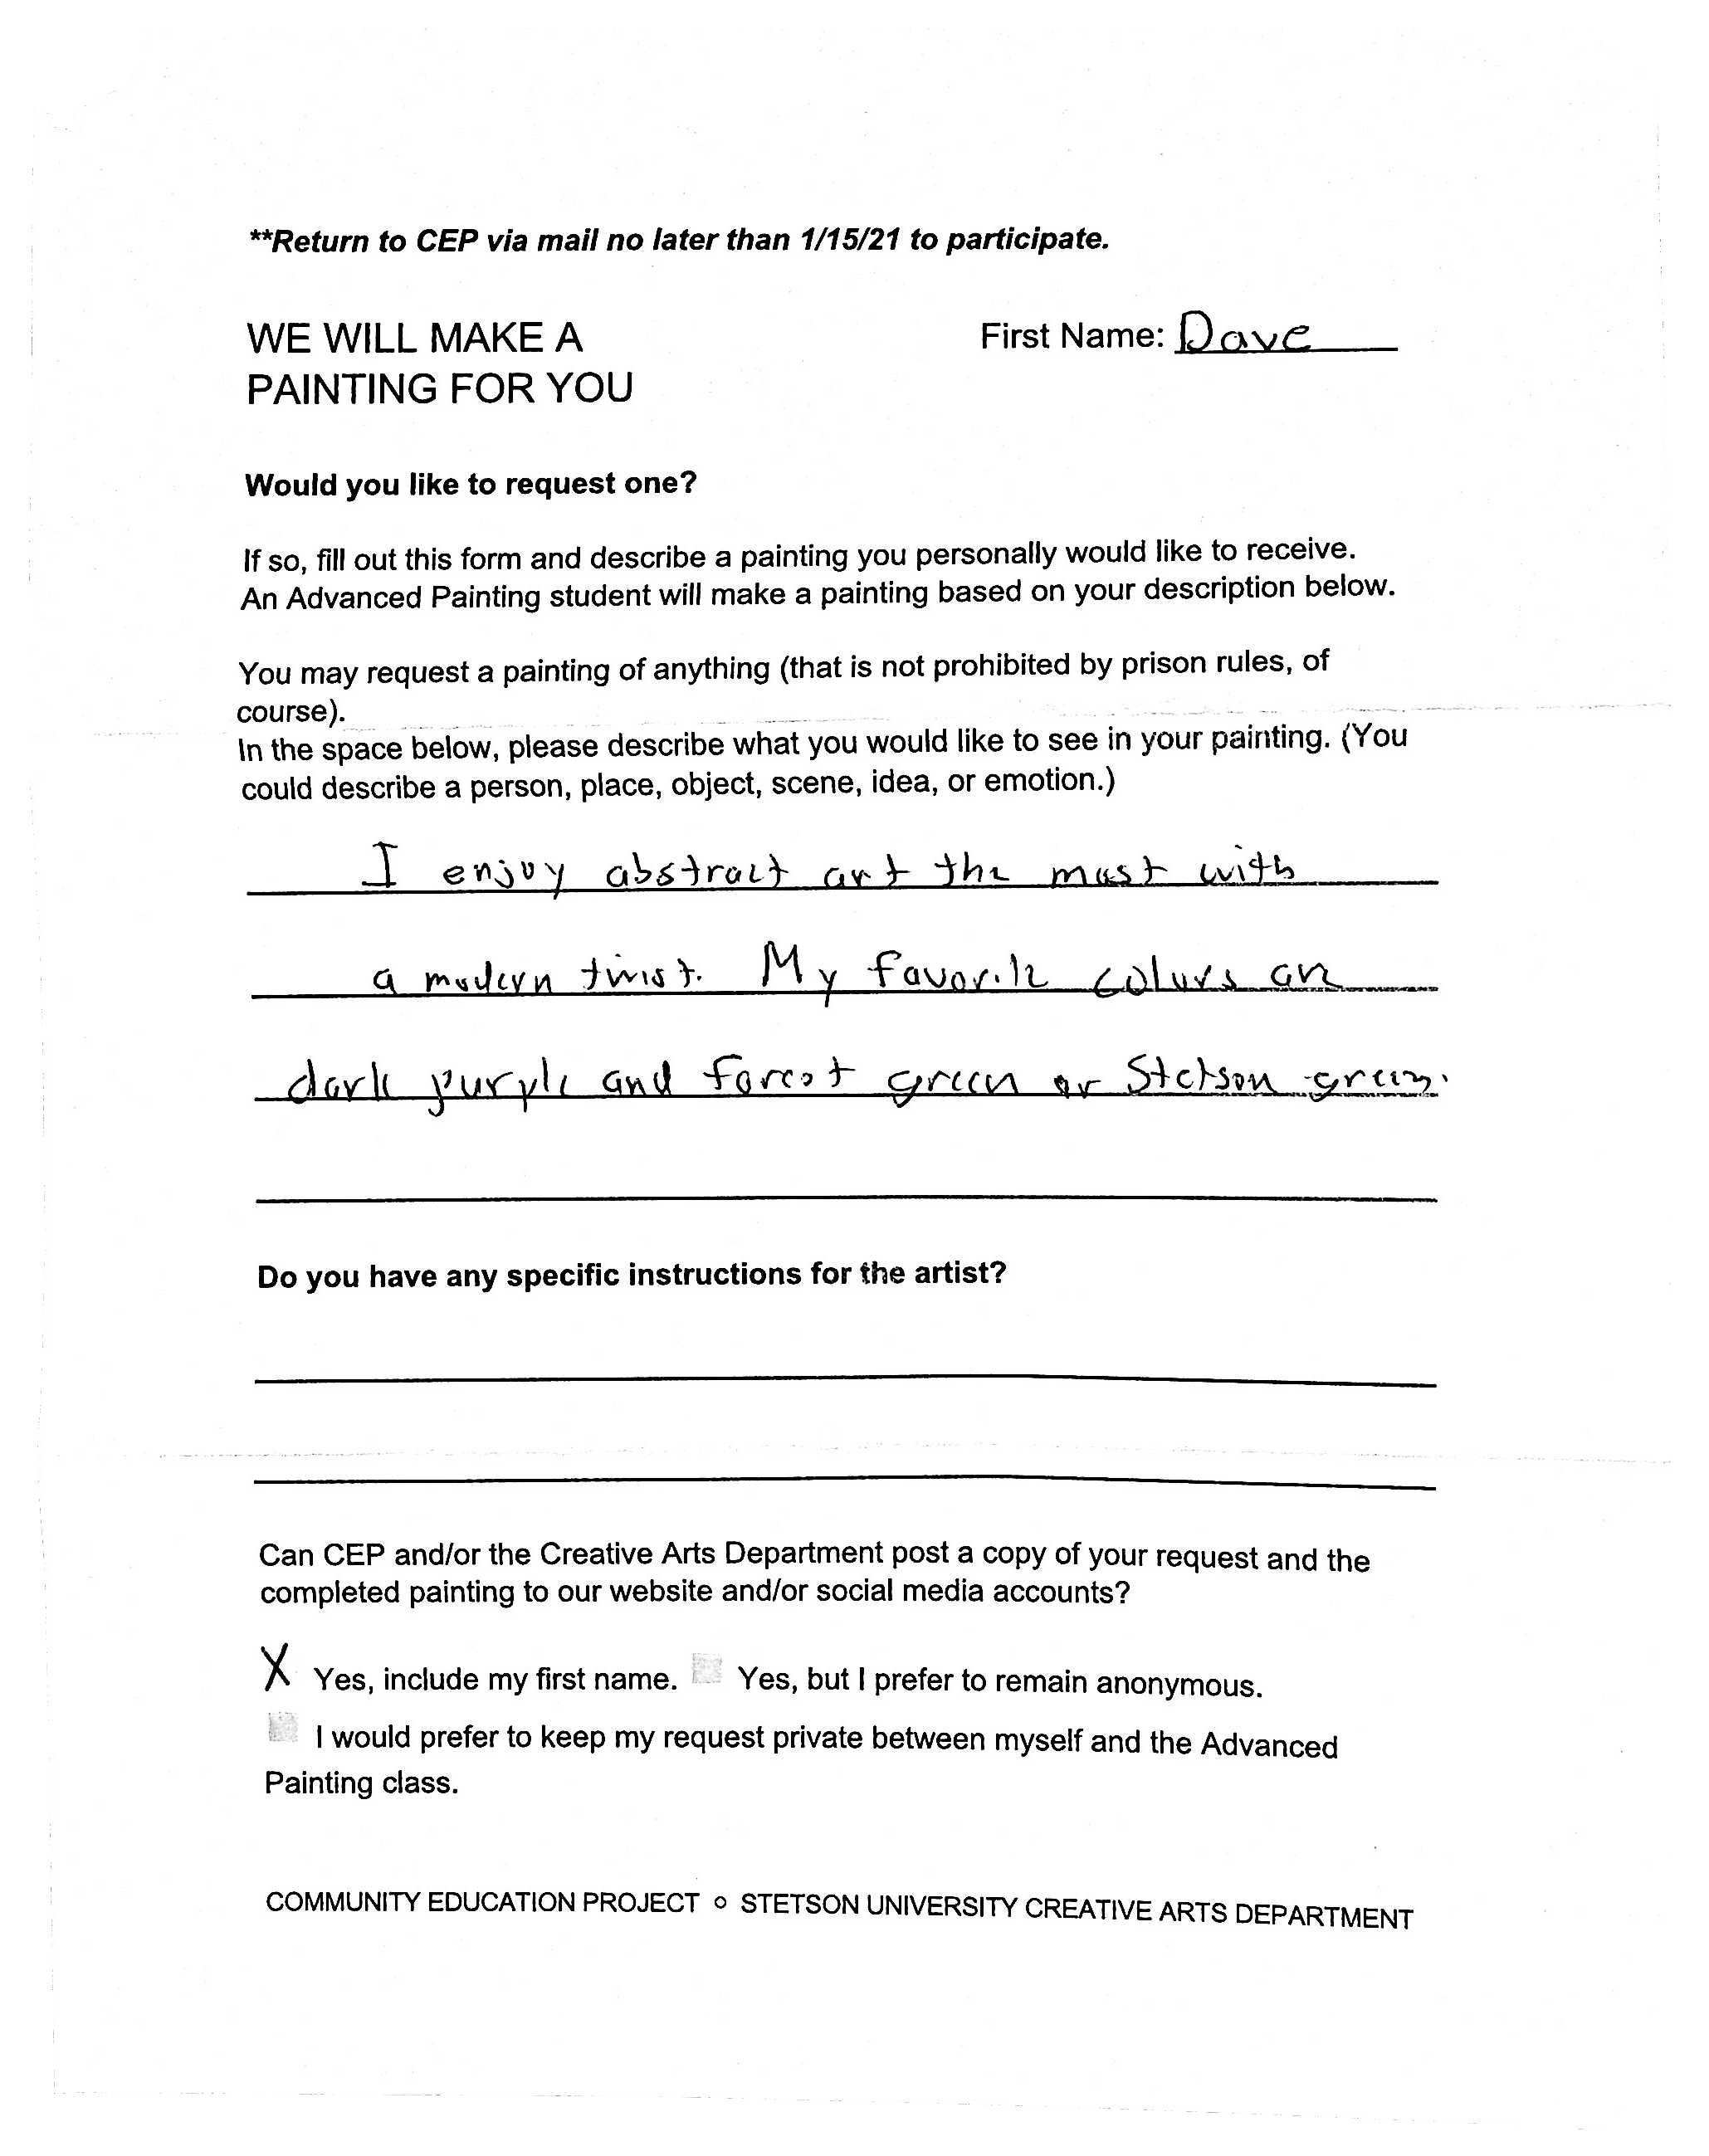 **Return to CEP via mail no later than 1/15/21 to participate.
WE WILL MAKE A
PAINTING FOR YOU
First Name: Dave
Would you like to request one?
If so, fill out this form and describe a painting you personally would like to receive.
An Advanced Painting student will make a painting based on your description below.
You may request a painting of anything (that is not prohibited by prison rules, of
course).
In the space below, please describe what you would like to see in your painting. (You
could describe a person, place, object, scene, idea, or emotion.)
I enjoy abstract art the most with
a modern twist. My favorite colors are
dark purple and forest green or Stetson green.
Do you have any specific instructions for the artist?
Can CEP and/or the Creative Arts Department post a copy of your request and the
completed painting to our website and/or social media accounts?
X Yes, include my first name. Yes, but I prefer to remain anonymous.
I would prefer to keep my request private between myself and the Advanced
Painting class.
COMMUNITY EDUCATION PROJECT o STETSON UNIVERSITY CREATIVE ARTS DEPARTMENT